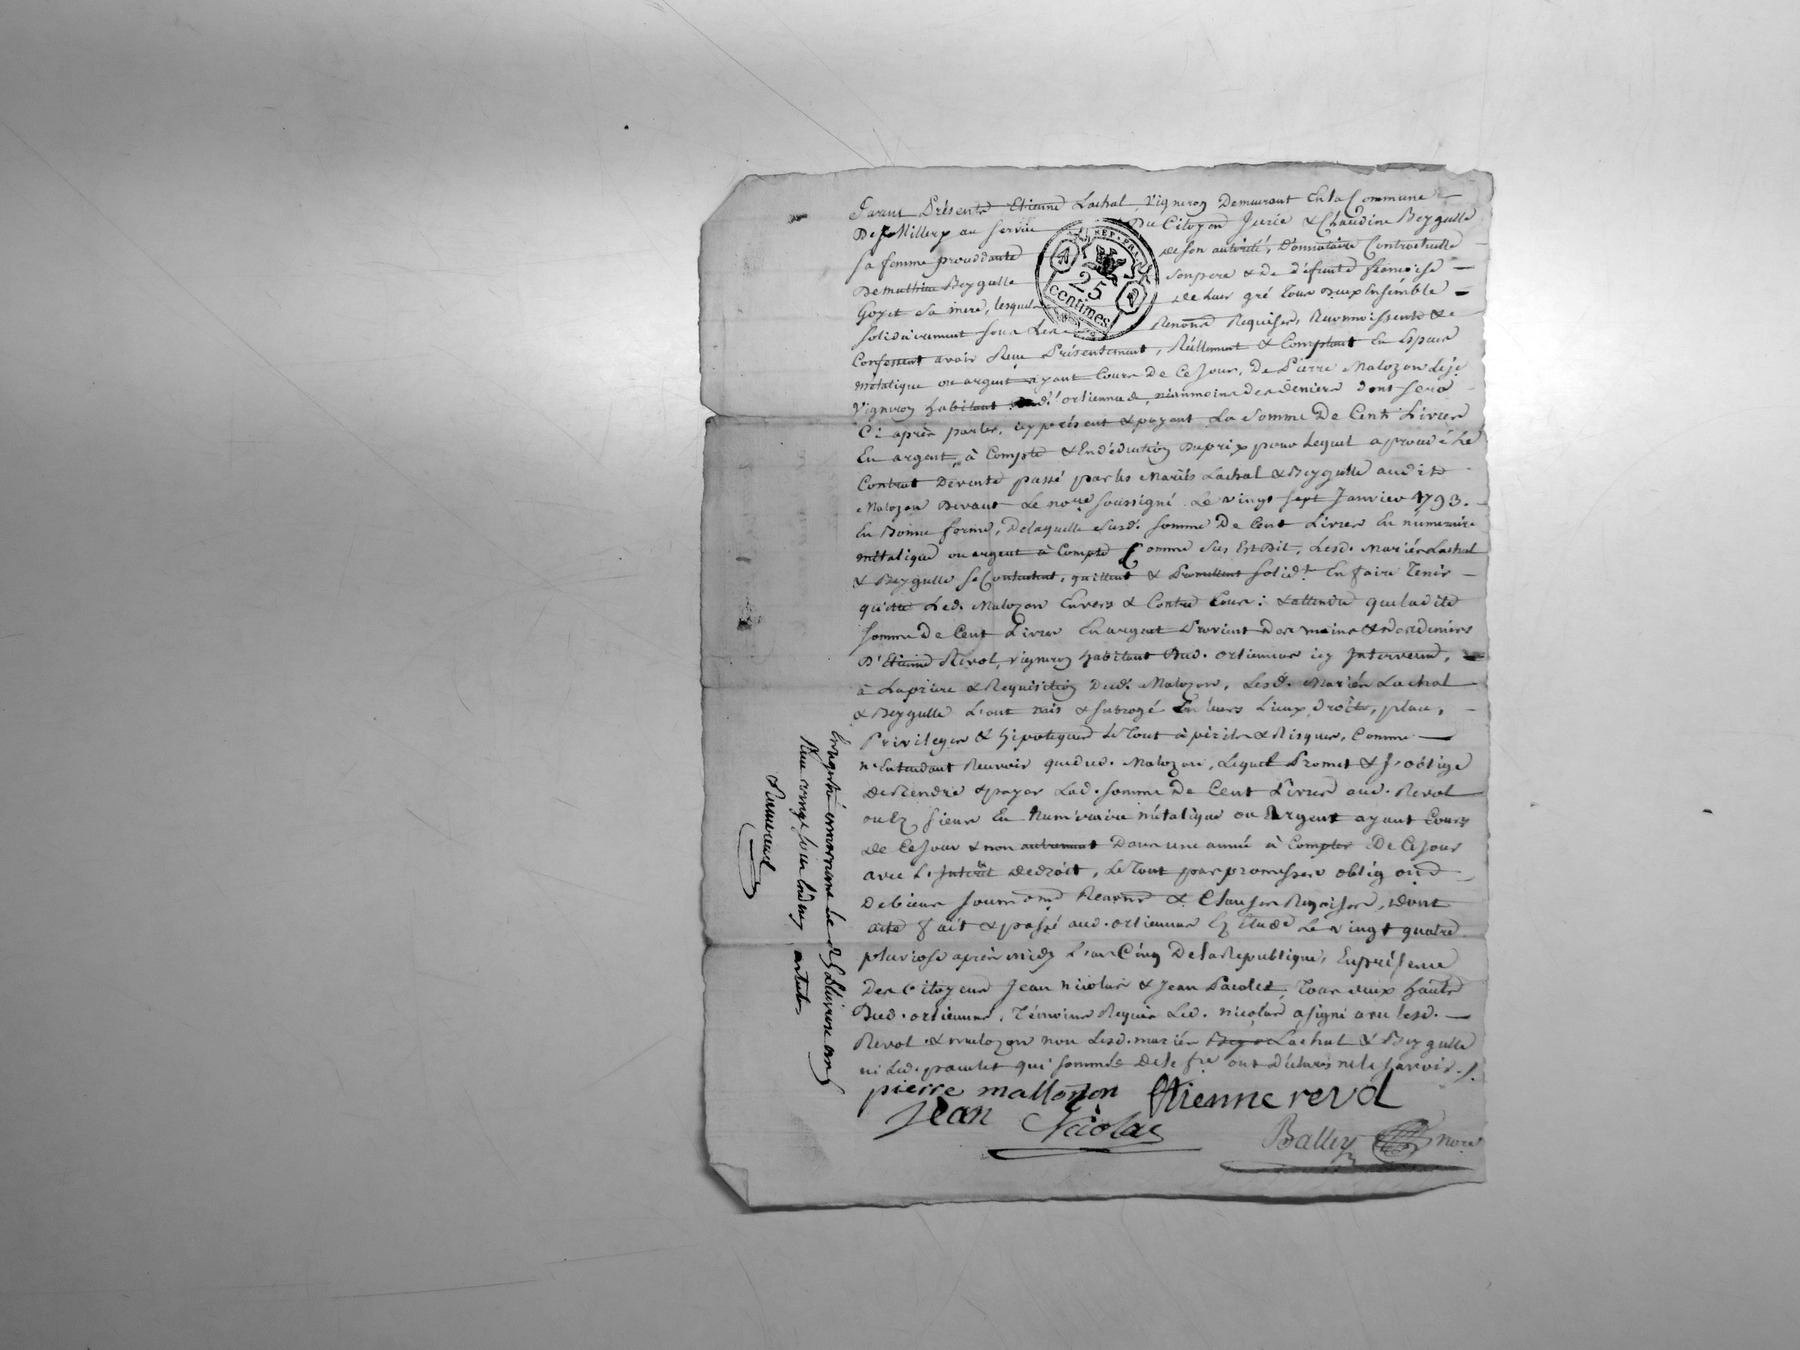 Furent Présents Etienne Lachal, Vigneron Demeurant En la Commune
De Millery au service Du Citoyen Jurie & Claudine Beygulle
sa femme procédante de son autorité, Donnataire Contractuelle
De mathieu Beygulle son pere & de défunte françoise
Goyet sa mere, lesquels de Leur gré Tous Deux Ensemble
solidairement sous Les Renons Requises, Reconnoissent &
Confessent avoir Reçu Présentement, Réellement & Comptant En Espece
métalique ou argent ayant Cours De Ce Jour, De Pierre Malozon
Vigneron habitant d'orliennas, néanmoins des deniers dont sera
Ci après parlés, icy présent & payant La somme De Cent Livres
En argent, à Compte & En déduction Du prix pour Lequel a
Contrat De vente passé par les Mariés Lachal & Beygulle audit
Malozon Devant Le nore. soussigné Le vingt sept Janvier 1793.
En Bonne forme, De laquelle susd. somme De Cent Livres En numeraire
métalique ou argent à Compte Comme sus Est Dit, Lesd. Mariés Lachal
& Beygulle se Contentent, quittent & Promettent solidt. En faire Tenir
quitte Led. Malozon Envers & Contre Tous: & attendu que ladite
somme De Cent Livres En argent Provient des mains & des deniers
D'Etienne Revol, vigneron habitant Dud. orliennas icy Intervenu,
à La prière & Requisition Dud. Malozon, Lesd. Mariés Lachal
& Beygulle L'ont mis & subrogé En leurs Lieux, droits, place,
Privileges & hipoteques Le Tout à périls & Risques, Comme
n'Entendant Recevoir que dud. Malozon, Lequel Promet & s'oblige
de Rendre & payer Lad. somme De Cent Livres aud. Revol
ou Ez siens En Numeraire métalique ou Argent ayant Cours
de Ce Jour & non autrement Dans une année à Compter De Ce Jour
avec L'Interêt de droit, Le Tout par promesses oblig ons
De biens soumons Renons & Clauses Requises, dont
acte fait & passé aud. orliennas Ez Etude Le vingt quatre
pluviose après midy L'an Cinq De la Republique, En présence
Des Citoyens Jean nicolas & Jean Paculet, Tous deux habts
Dud. orliennas, Témoins Requis Led. nicolas a signé avec lesd.
Revol & malozon non Lesd. mariés Lachal & Beygulle
ni Led. paculet qui sommés De le fre ont Déclarés ne le sçavoir.
pierre mallozon Etienne revol
Jean Nicolas
Balley nore
Enregistré a mornant le 28 Pluviose an 5
Reçu vingt sous